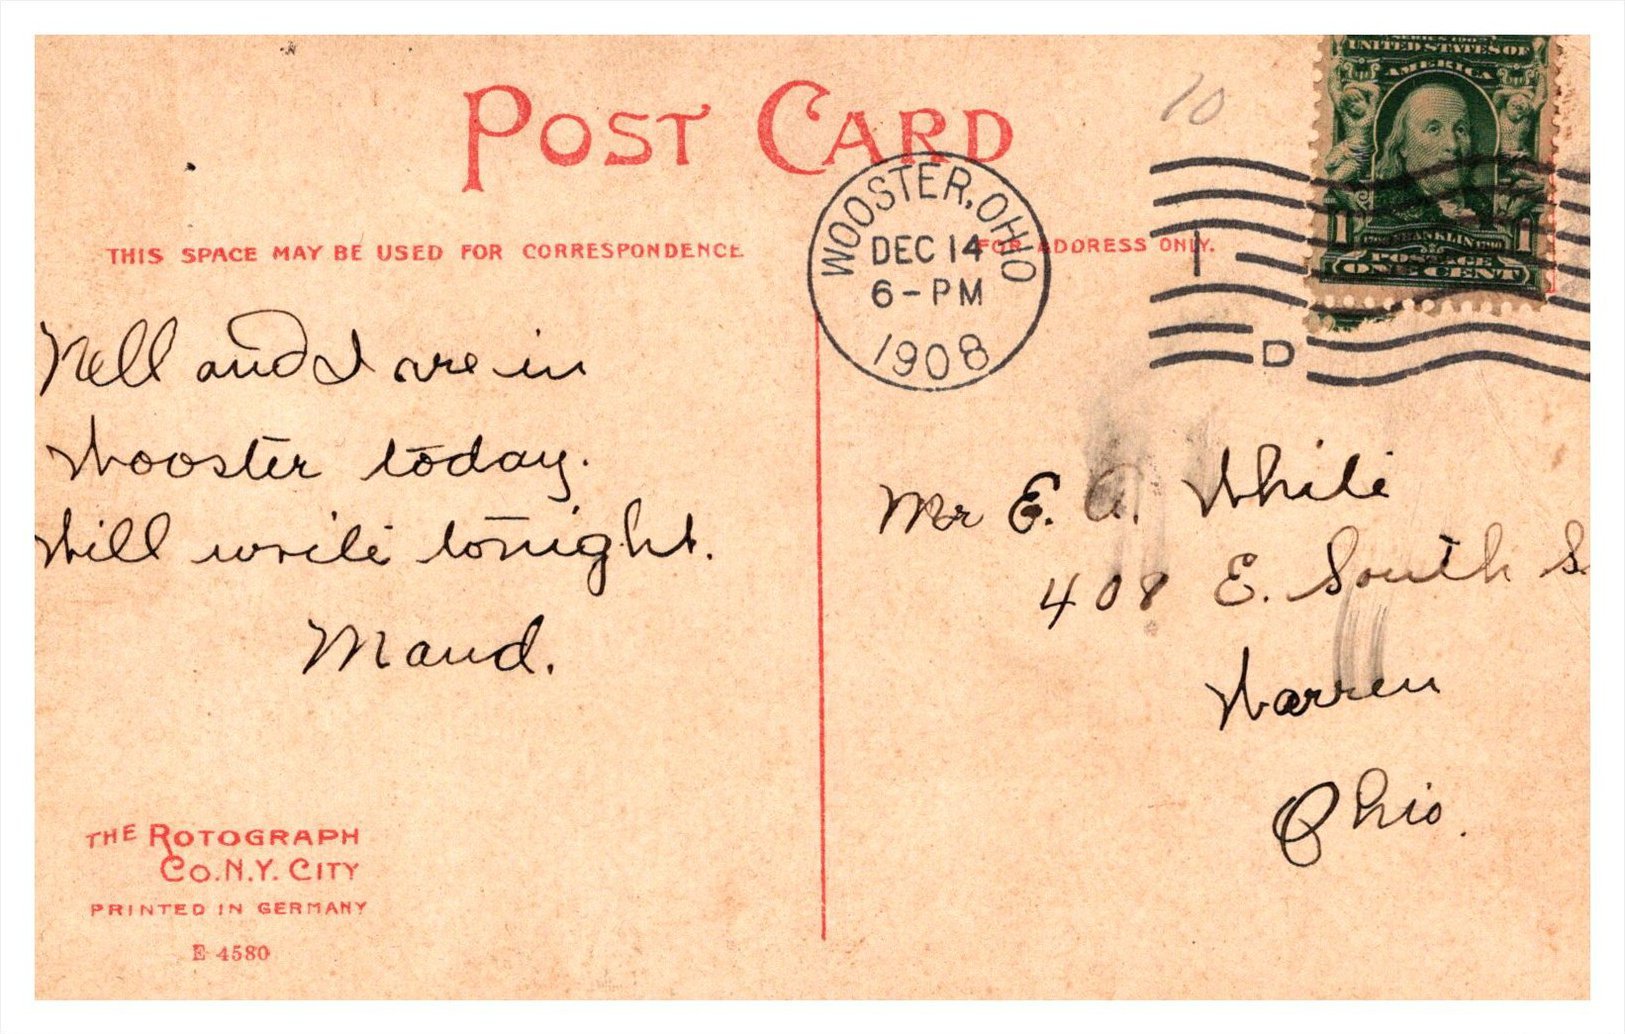 10
SERIES 1902
UNITED STATES OF
AMERICA
1 FRANKLIN 1
POSTAGE
ONE CENT
POST CARD
WOOSTER, OHIO
DEC 14
6-PM
1908
1
D
THIS SPACE MAY BE USED FOR CORRESPONDENCE
FOR ADDRESS ONLY.
Nell and I are in
Wooster today.
Will write tonight.
Maud.
Mr E. A. White
408 E. South S
Warren
Ohio.
THE ROTOGRAPH
CO. N.Y. CITY
PRINTED IN GERMANY
E 4580